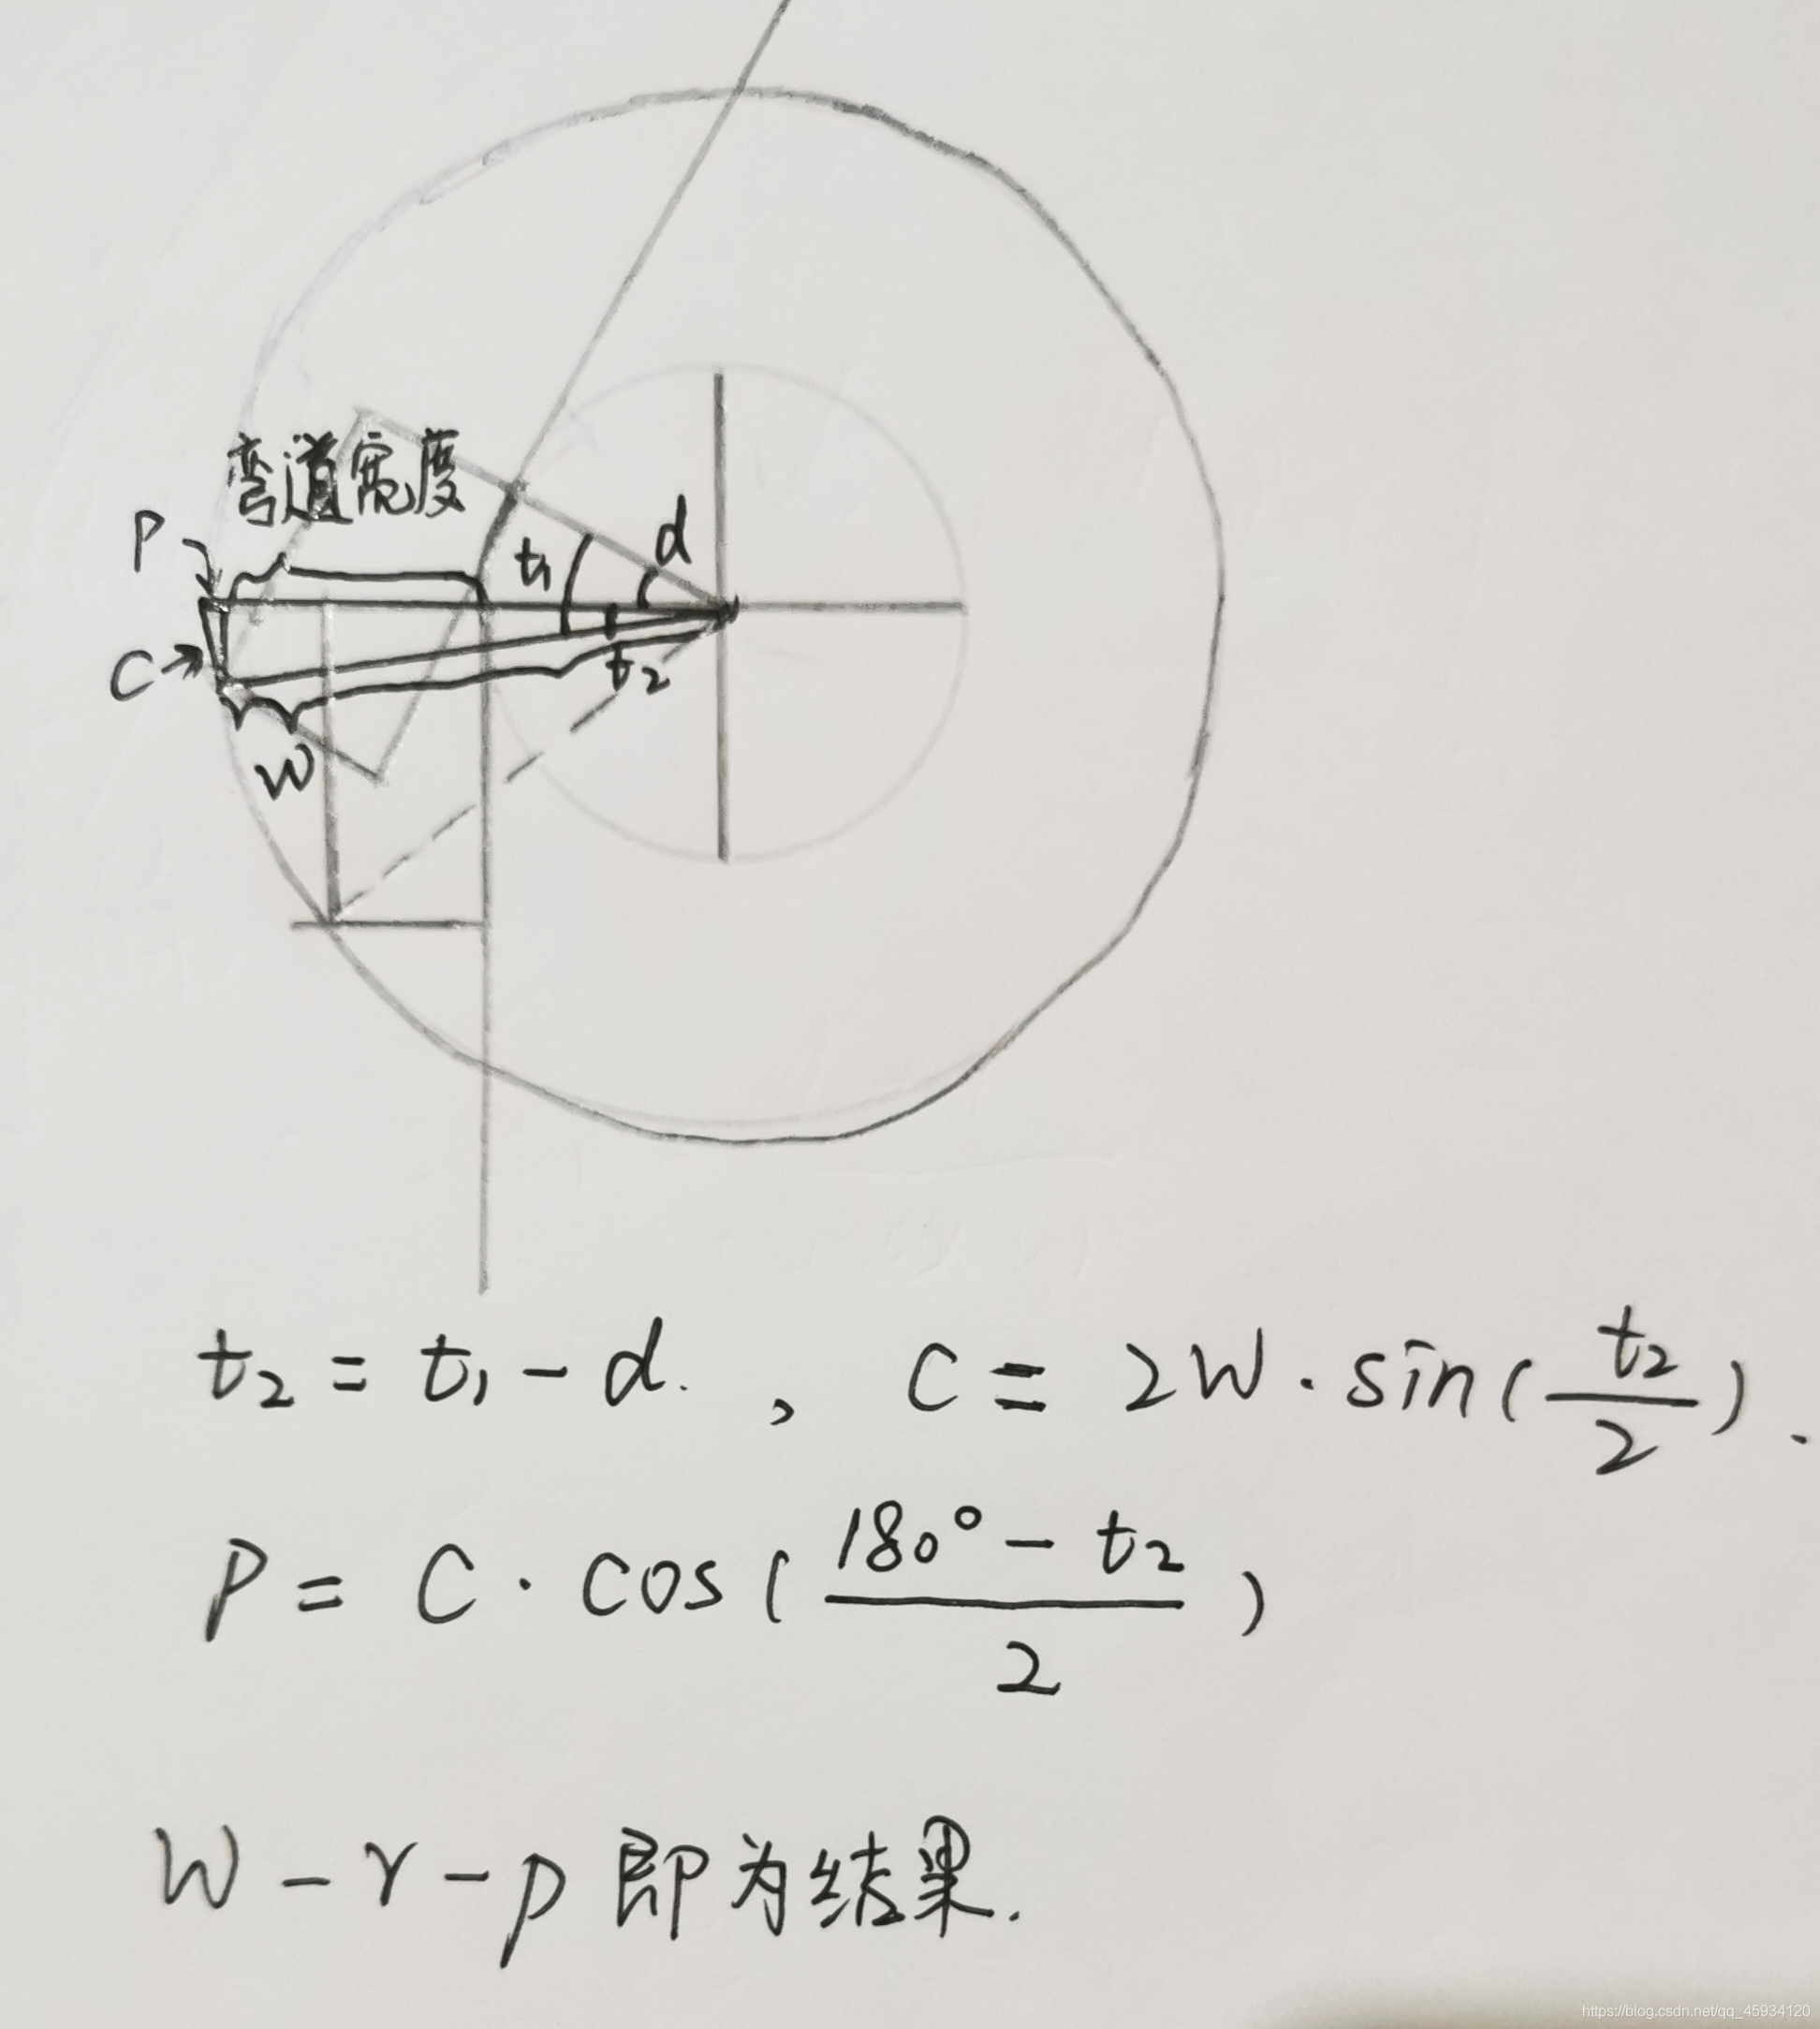 弯道宽度
P
d
t₁
C
t₂
W
t₂ = t₁ - d. , C = 2W · sin(t₂/2).
P = C · cos(180° - t₂ / 2)
W - r - p 即为结果.
https://blog.csdn.net/qq_45934120